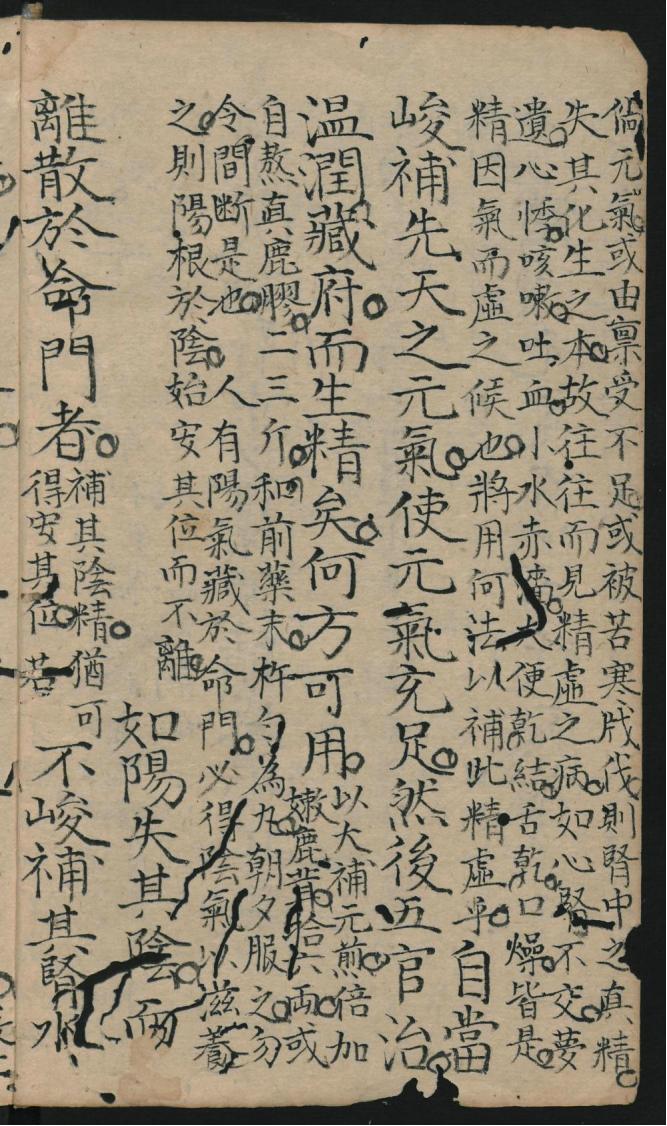 倘元氣。或由禀受不足。或被苦寒戕伐則腎中之真精。
失其化生之本。故往往而見精虛之病。如心腎不交。夢
遺。心悸。咳嗽。吐血。小水赤濇。大便乾結。舌乾。口燥。皆是。
精因氣而虛之候也。將用何法以補此精虛乎。
自當
峻補先天之元氣。使元氣充足。然後五官治。
温潤藏府。而生精矣。何方可用。
以大補元煎。倍加
嫩鹿茸拾六両。或
自熬真鹿膠。二三斤。和前藥末。杵勻為丸。朝夕服之。勿
令間斷是也。人有陽氣藏於命門。必得陰氣以滋養
之。則陽根於陰。始安其位而不離。
如陽失其陰。而
離散於命門者。
補其陰精。猶可
得安其位。若
不峻補其腎水